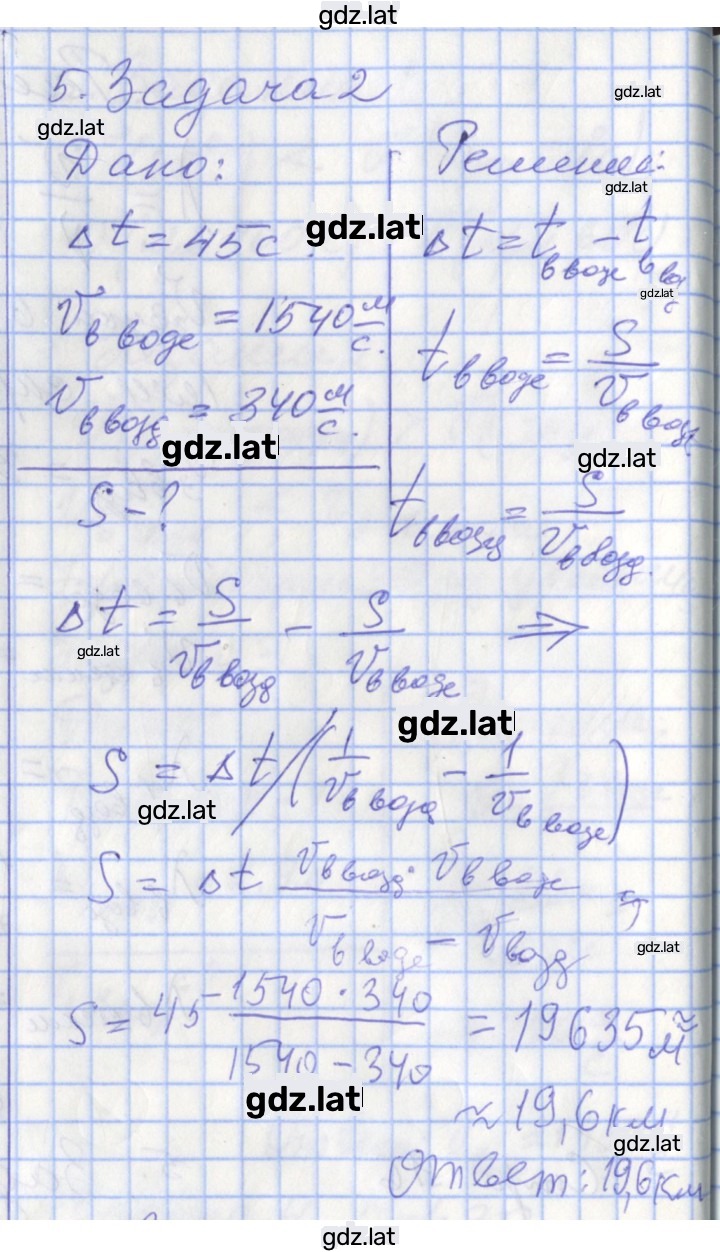 gdz.lat
5. Задача 2
gdz.lat
gdz.lat
Дано:
Δt = 45 с
v в воде = 1540 м/с.
v в возд = 340 м/с.
gdz.lat
S - ?
Решение:
gdz.lat
gdz.lat
Δt = t в воде - t в воз
gdz.lat
t в воде = S / v в возд.
gdz.lat
t в возд = S / v в возд.
Δt = S / v в возд - S / v в воде ⇒
gdz.lat
gdz.lat
S = Δt / (1 / v в возд - 1 / v в воде)
gdz.lat
S = Δt v в возд · v в воде / v в воде - v возд ;
gdz.lat
S = 45 1540 · 340 / 1540 - 340 = 19635 м ≈
gdz.lat
≈ 19,6 км
gdz.lat
Ответ: 19,6 км
gdz.lat